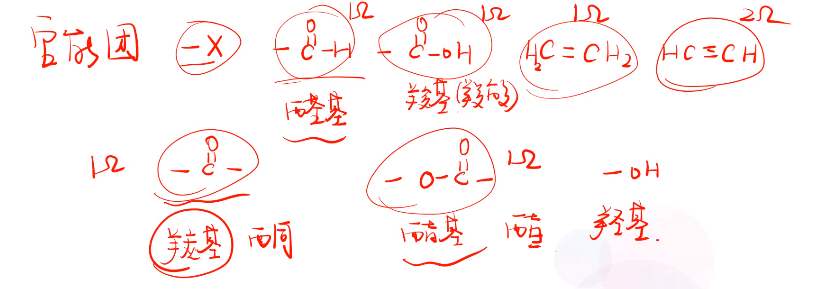 官能团 -X -C(=O)-H 1Ω -C(=O)-OH 1Ω H₂C=CH₂ 1Ω HC≡CH 2Ω
醛基 羧基(羧酸)
1Ω -C(=O)- -O-C(=O)- 1Ω -OH
羰基 酮 酯基 酯 羟基.